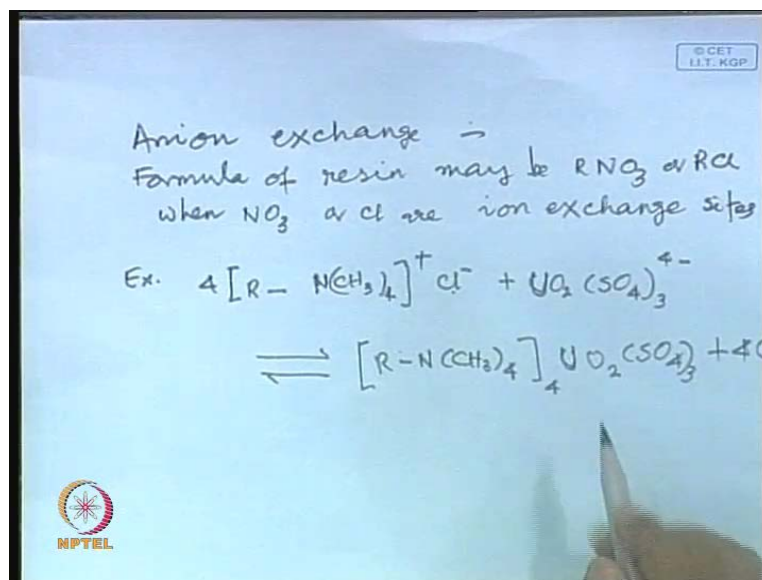 © CET
I.I.T. KGP
Anion exchange -
Formula of resin may be RNO₃ or RCl
when NO₃ or Cl are ion exchange sites
Ex. 4 [R - N(CH₃)₄]⁺ Cl⁻ + UO₂(SO₄)₃⁴⁻
⇌ [R-N(CH₃)₄]₄ UO₂(SO₄)₃ + 4C
NPTEL